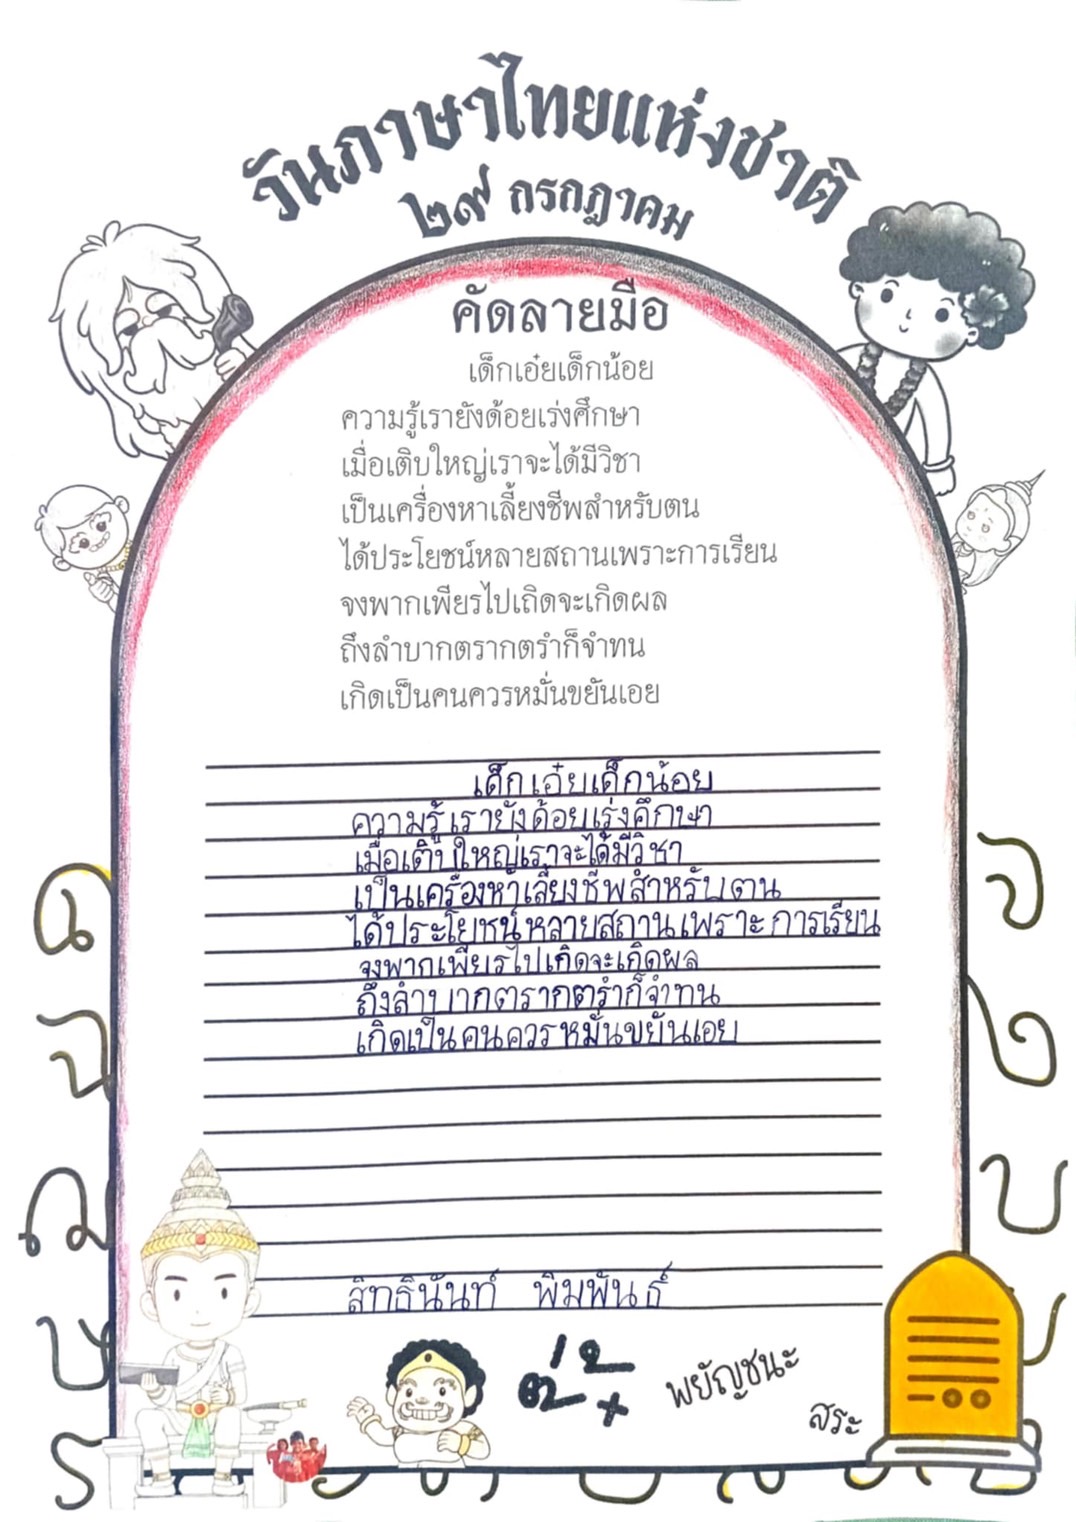 วันภาษาไทยแห่งชาติ
๒๙ กรกฎาคม
คัดลายมือ
เด็กเอ๋ยเด็กน้อย
ความรู้เรายังด้อยเร่งศึกษา
เมื่อเติบใหญ่เราจะได้มีวิชา
เป็นเครื่องหาเลี้ยงชีพสำหรับตน
ได้ประโยชน์หลายสถานเพราะการเรียน
จงพากเพียรไปเถิดจะเกิดผล
ถึงลำบากตรากตรำก็จำทน
เกิดเป็นคนควรหมั่นขยันเอย
เด็กเอ๋ยเด็กน้อย
ความรู้เรายังด้อยเร่งศึกษา
เมื่อเติบใหญ่เราจะได้มีวิชา
เป็นเครื่องหาเลี้ยงชีพสำหรับตน
ได้ประโยชน์หลายสถานเพราะการเรียน
จงพากเพียรไปเถิดจะเกิดผล
ถึงลำบากตรากตรำก็จำทน
เกิดเป็นคนควรหมั่นขยันเอย
สิทธินันท์ พิมพันธ์
พยัญชนะ
สระ